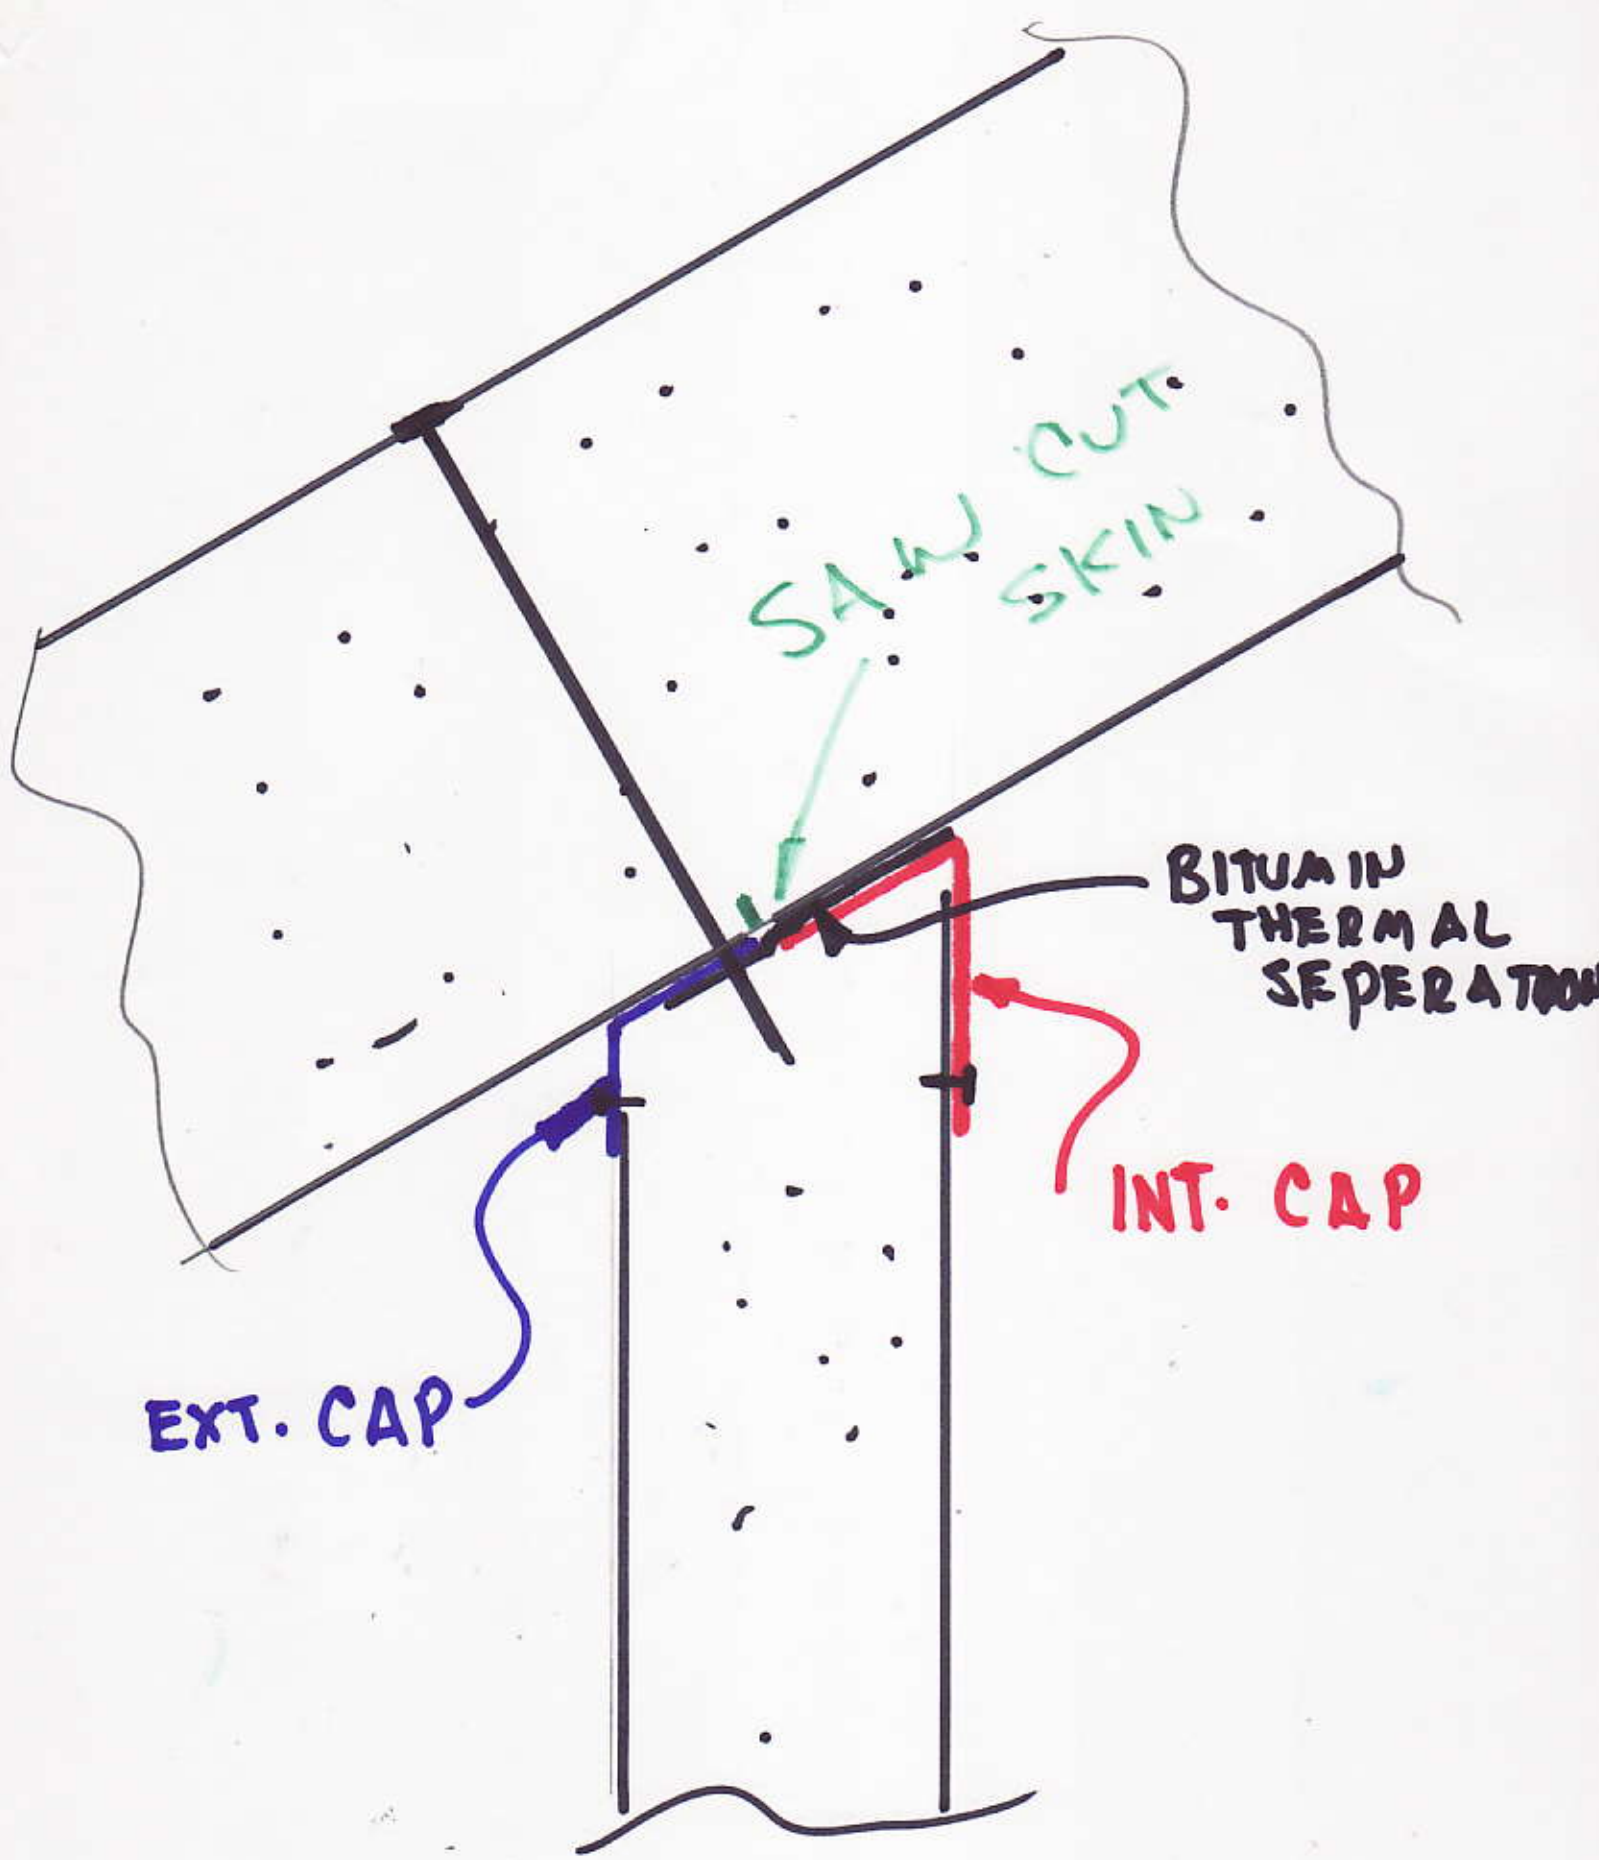 SAW CUT
SKIN
BITUMIN
THERMAL
SEPERATION
INT. CAP
EXT. CAP